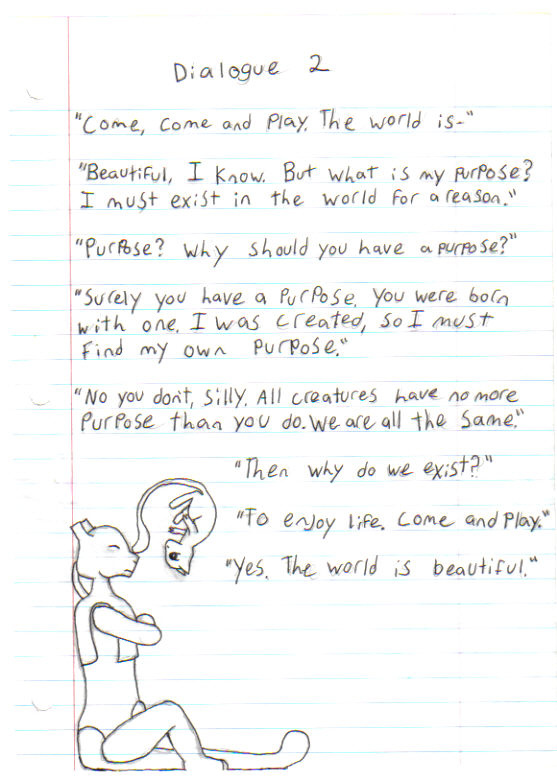 Dialogue 2
"Come, come and play. The world is-"
"Beautiful, I know. But what is my purpose?
I must exist in the world for a reason."
"Purpose? Why should you have a purpose?"
"Surely you have a purpose. You were born
with one. I was created, so I must
find my own purpose."
"No you don't, silly. All creatures have no more
purpose than you do. We are all the same."
"Then why do we exist?"
"To enjoy life. Come and play."
"Yes. The world is beautiful."